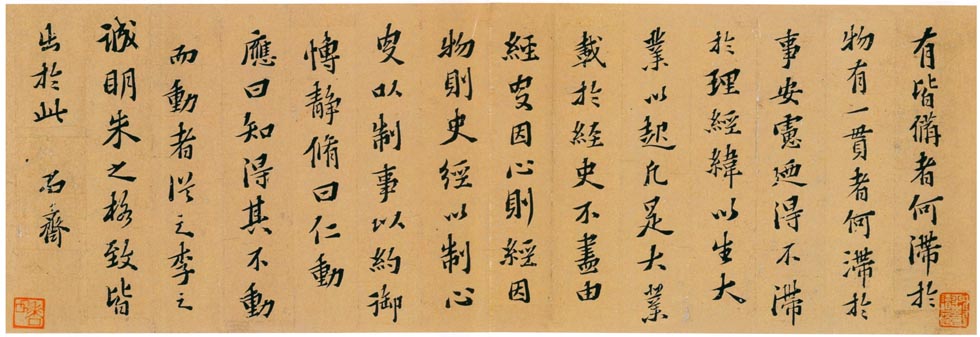 有皆備者何滯於
物有一貫者何滯於
事安慮迺得不滯
於理經緯以生大
業以起凡是大業
載於経史不盡由
經叓因心則經因
物則史經以制心
叓以制事以約御
博靜脩曰仁動
應曰知得其不動
而動者從之李之
誠明朱之格致皆
出於此 尚齋